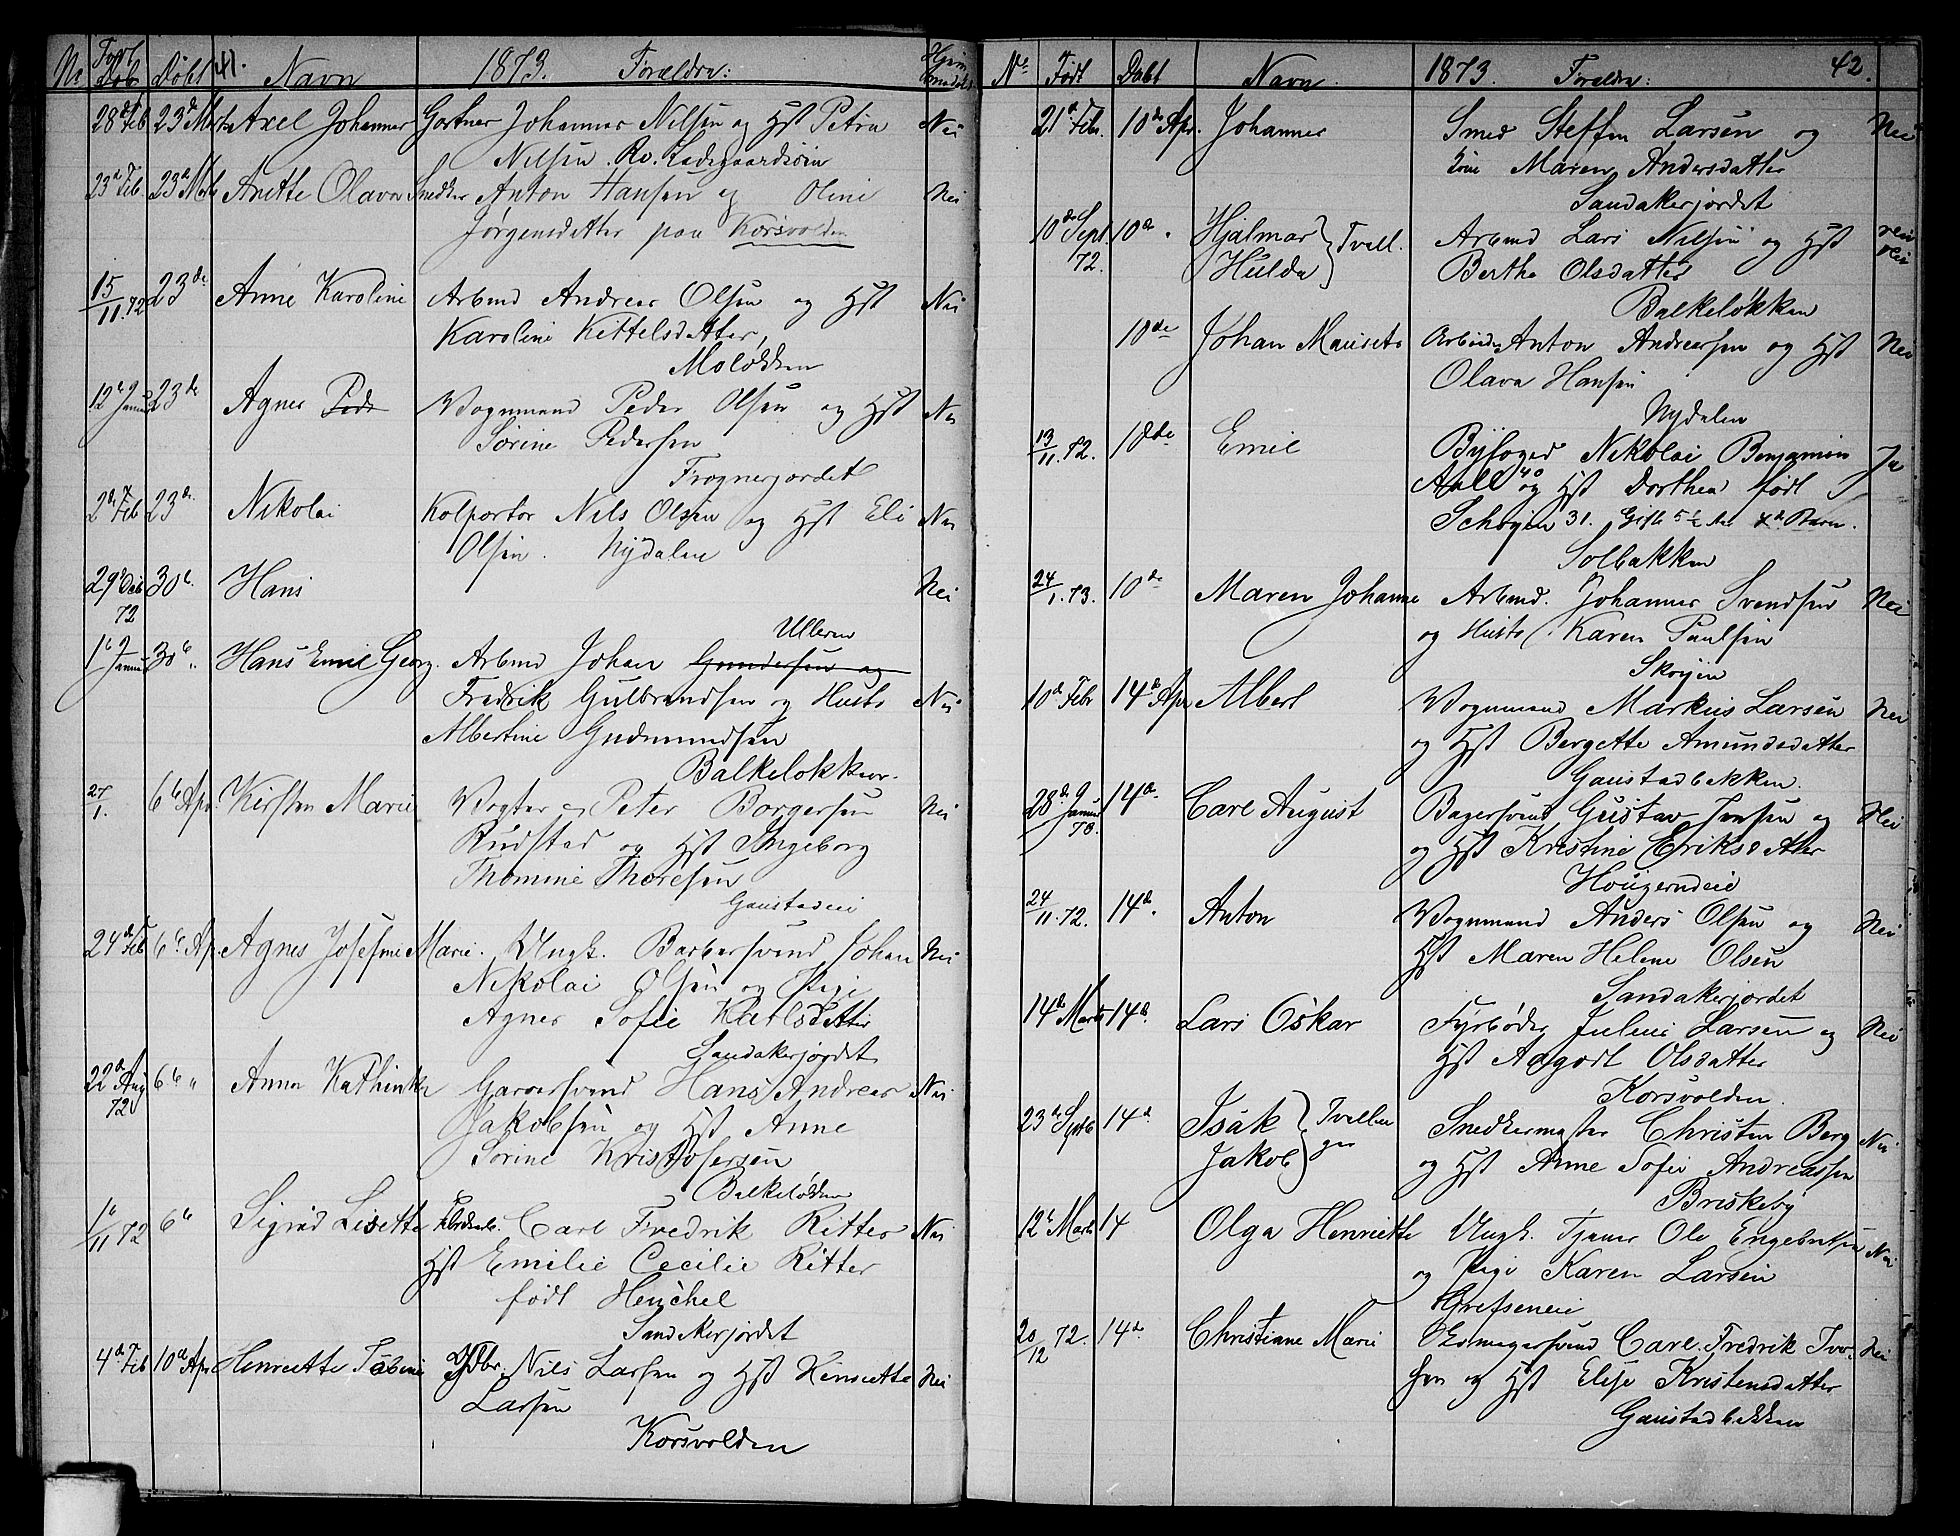 Nr Født Døbt 41. Navn 1873. Forældre: Hjem
28de Feb 23de Marts Axel Johannes Gartner Johannes Nilsen og Hst Petra Nei
Nilsen. Ro. Ladegaardsøen
23de Feb. 23de Anette Olava Snedker Anton Hansen og Oline Nei
Jørgensdatter paa Korsvolden
15/11.72 23de Anne Karoline Arbmd Andreas Olsen og Hst Nei
Karoline Kittelsdatter,
Moløkken
12te Januar 23de Agnes Pede Vognmand Peder Olsen og Hst Nei
Sørine Pedersen
Frognerjordet
2de Feb 23de Nikolai Kolportør Nils Olsen og Hst Eli Nei
Olsen. Nydalen
29de Deb 72 30te Hans Nei
Ulleren
1te Januar 30te Hans Emil Georg. Arbmd Johan Gundersen og
Fredrik Gulbrandsen og Hustr Nei
Albertine Gudmundsen
Balkeløkken.
27/1. 6te Apr. Kirsten Marie Vogter Peter Borgersen Nei
Rudstad og Hst Ingeborg
Thomine Thoresen
Gaustadeie
24de Feb 6te Ap. Agnes Josefine Marie. Ungk. Barbersvend Johan Nei
Nikolai Olsen og Pige
Agnes Sofie Karlsdatter
Sandakerjordet
22de Aug 72 6te " Anna Kathinka Garversvend Hans Andreas Nei
Jakobsen og Hst Anne
Sørine Kristofersen
Balkeløkken
1/11 72 6te Sigrid Lisette Carl Fredrik Ritter Nei
Hst Emilie Cecilie Ritter
født Henschel
Sandakerjordet
4de Feb 10de Apr Henriette Nils Larsen og Hst Henriette Nei
Larsen
Korsvolden
No Født Døbt Navn. 1873. Forældre: 42.
21de Feb. 10de Apr. Johannes Smed Steffen Larsen og Nei
Maren Andersdatter
Sandakerjordet
10de Sept 72. 10de " Hjalmar } Tvill. Arbmd Lars Nilsen og Hst Nei
Hulda Berthe Olsdatter Nei
Balkeløkken
10de Johan Mauritz Arbeider Anton Andreassen og Hst Nei
Olava Hansen
Nydalen
13/11.72. 10de Emil Byfoged Nikolai Benjamin Ja
Aall 40 og Hst Dorthea født
Schøyen 31. Gift 5½ Aar 4de Barn.
Solbakken
24/1.73. 10de Maren Johanne Arbmd. Johannes Svendsen Nei
og Hustr. Karen Paulsen
Skøyen
10de Febr 14de Apr Albert Vognmand Markus Larsen Nei
og Hst Bergette Amundsdatter
Gaustadbekken.
28de Januar 73. 14de. Carl August Bagersvend Gustav Jonsen og Nei
og Hst Kristine Eriksdatter
Hougerudeie
24/11.72. 14de. Anton Vognmand Anders Olsen og Nei
Hst Maren Helene Olsen
Sandakerjordet
14de Marts 14de. Lars Oskar Fyrbøder Julius Larsen og Nei
Hst Aagodt Olsdatter
Korsvolden.
23de Septb 14de Isak } Tvillin Snedkermester Christen Berg Nei
Jakob ger og Hst Anne Sofie Andreassen
Briskeby
12te Marts 14 Olga Henriette Ungk. Tjener Ole Engebretsen Nei
og Pige Karen Larsen
Grefseneie
20/12 72. 14de. Christiane Marie Skomagersvend Carl Fredrik Iver- Nei
sen og Hst Elise Kristensdatter
Gaustadbekken